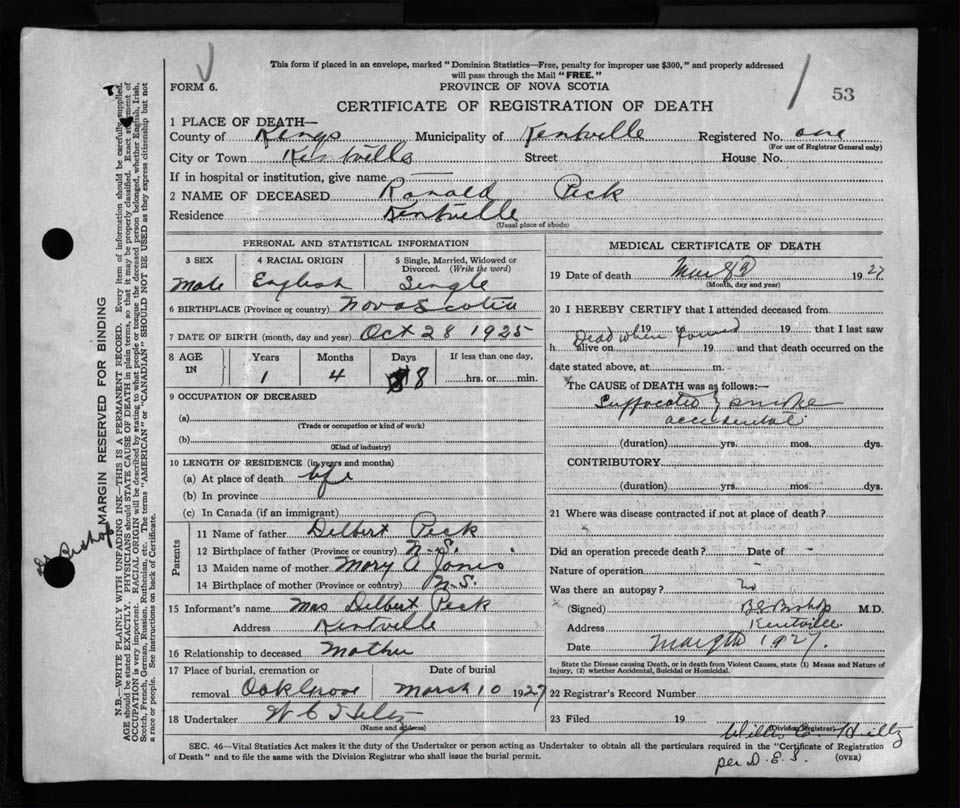 This form if placed in an envelope, marked "Dominion Statistics—Free, penalty for improper use $300," and properly addressed
will pass through the Mail "FREE."
FORM 6.
PROVINCE OF NOVA SCOTIA
53
CERTIFICATE OF REGISTRATION OF DEATH
1 PLACE OF DEATH—
County of Kings Municipality of Kentville Registered No. one
(For use of Registrar General only)
City or Town Kentville Street House No.
If in hospital or institution, give name —
2 NAME OF DECEASED Ronald Peck
Residence Kentville
(Usual place of abode)
PERSONAL AND STATISTICAL INFORMATION
3 SEX 4 RACIAL ORIGIN 5 Single, Married, Widowed or
Divorced. (Write the word)
Male English Single
6 BIRTHPLACE (Province or country) Nova Scotia
7 DATE OF BIRTH (month, day and year) Oct 28 1925
8 AGE IN Years Months Days If less than one day,
1 4 8 hrs. or min.
9 OCCUPATION OF DECEASED
(a)
(Trade or occupation or kind of work)
(b)
(Kind of industry)
10 LENGTH OF RESIDENCE (in years and months)
(a) At place of death life
(b) In province
(c) In Canada (if an immigrant)
Parents
11 Name of father Delbert Peck
12 Birthplace of father (Province or country) N.S.
13 Maiden name of mother Mary A Jones
14 Birthplace of mother (Province or country) N.S.
15 Informant's name Mrs Delbert Peck
Address Kentville
16 Relationship to deceased Mother
17 Place of burial, cremation or Date of burial
removal Oak Grove March 10 1927
18 Undertaker W C Hiltz
(Name and address)
MEDICAL CERTIFICATE OF DEATH
19 Date of death Mar 1927
(Month, day and year)
20 I HEREBY CERTIFY that I attended deceased from
19 19 that I last saw
Dead when found
h alive on 19 and that death occurred on the
date stated above, at m.
The CAUSE of DEATH was as follows:—
Suffocated smoke
accidental
(duration) yrs. mos. dys.
CONTRIBUTORY
(duration) yrs. mos. dys.
21 Where was disease contracted if not at place of death?
Did an operation precede death? Date of -
Nature of operation -
Was there an autopsy? no
(Signed) B.S. Bishop M.D.
Address Kentville
Date Mar 1927
State the Disease causing Death, or in death from Violent Causes, state (1) Means and Nature of
Injury, (2) whether Accidental, Suicidal or Homicidal.
22 Registrar's Record Number
23 Filed 19
(Division Registrar)
Hiltz
per D. E. S.
(OVER)
SEC. 46—Vital Statistics Act makes it the duty of the Undertaker or person acting as Undertaker to obtain all the particulars required in the "Certificate of Registration
of Death" and to file the same with the Division Registrar who shall issue the burial permit.
MARGIN RESERVED FOR BINDING
Dr Bishop
N.B.—WRITE PLAINLY WITH UNFADING INK—THIS IS A PERMANENT RECORD. Every item of information should be carefully supplied.
AGE should be stated EXACTLY. PHYSICIANS should STATE CAUSE OF DEATH in plain terms, so that it may be properly classified. Exact statement of
OCCUPATION is very important. RACIAL ORIGIN will be described by stating to what people or tongue the deceased person belonged, whether English, Irish,
Scotch, French, German, Russian, Ruthenian, etc. The terms "AMERICAN" or "CANADIAN" SHOULD NOT BE USED as they express citizenship but not
a race or people. See instructions on back of Certificate.